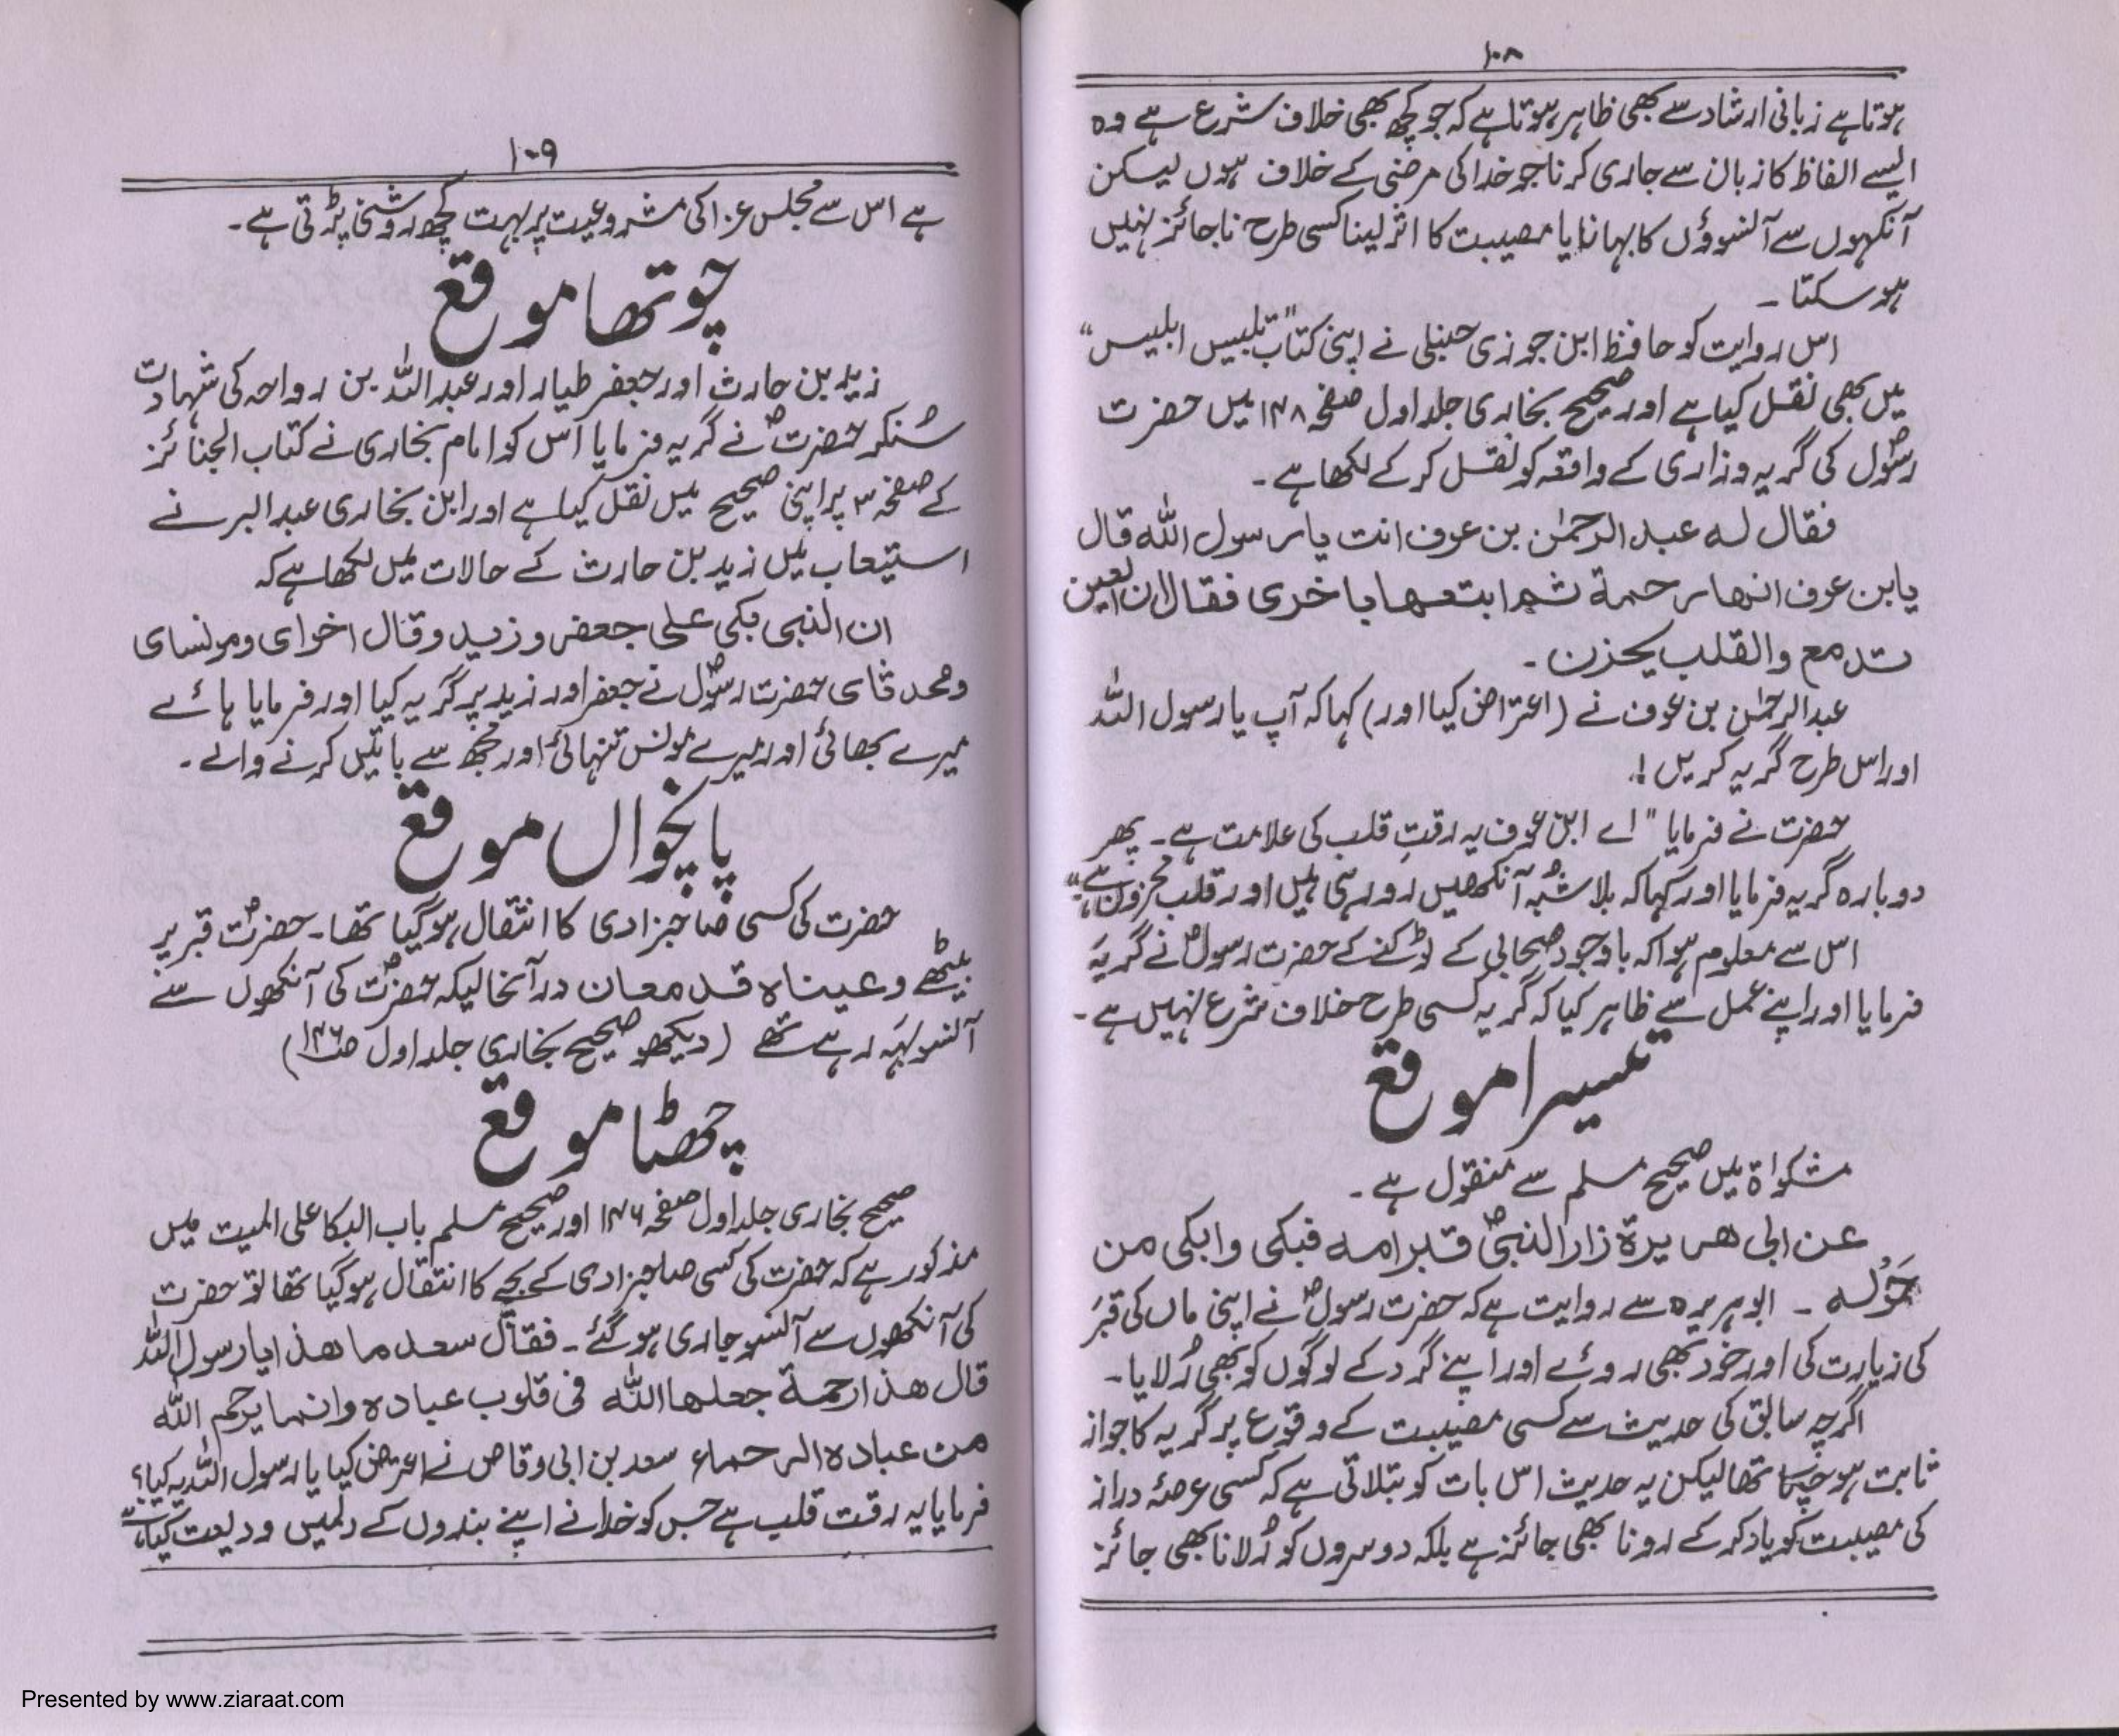 ۱۰۸
ہوتا ہے زبانی ارشاد سے بھی ظاہر ہوتا ہے کہ جو کچھ بھی خلاف شرع ہے وہ
ایسے الفاظ کا زبان سے جاری کرنا جو خدا کی مرضی کے خلاف ہوں لیکن
آنکہوں سے آنسوؤں کا بہانا یا مصیبت کا اثر لینا کسی طرح ناجائز نہیں
ہو سکتا -
اس روایت کو حافظ ابن جوزی حنبلی نے اپنی کتاب "تلبیس ابلیس"
میں بھی نقل کیا ہے اور صحیح بخاری جلد اول صفحہ ۱۴۸ میں حضرت
رسولؐ کی گریہ و زاری کے واقعہ کو نقل کر کے لکھا ہے -
فقال له عبد الرحمٰن بن عوف انت یا رسول الله قال
یابن عوف انها رحمة ثم ابتعها باخری فقال ان العین
تدمع والقلب یحزن -
عبدالرحمٰن بن عوف نے (اعتراض کیا اور) کہا کہ آپ یا رسول اللہ
اور اس طرح گریہ کریں !
حضرت نے فرمایا "اے ابن عوف یہ رقتِ قلب کی علامت ہے - پھر
دوبارہ گریہ فرمایا اور کہا کہ بلا شُبہ آنکھیں رو رہی ہیں اور قلب محزون ہے"
اس سے معلوم ہوا کہ باوجود صحابی کے ٹوکنے کے حضرت رسولؐ نے گریہ
فرمایا اور اپنے عمل سے ظاہر کیا کہ گریہ کسی طرح خلاف شرع نہیں ہے -
تیسرا موقع
مشکواۃ میں صحیح مسلم سے منقول ہے -
عن ابی هریرة زار النبیؐ قبر امه فبکی وابکی من
حَوْله - ابوہریرہ سے روایت ہے کہ حضرت رسولؐ نے اپنی ماں کی قبر
کی زیارت کی اور خود بھی روئے اور اپنے گرد کے لوگوں کو بھی رُلایا -
اگرچہ سابق کی حدیث سے کسی مصیبت کے وقوع پر گریہ کا جواز
ثابت ہو چکا تھا لیکن یہ حدیث اس بات کو بتلاتی ہے کہ کسی عرصۂ دراز
کی مصیبت کو یاد کر کے رونا بھی جائز ہے بلکہ دوسروں کو رُلانا بھی جائز
۱۰۹
ہے اس سے مجلس عزا کی مشروعیت پر بہت کچھ روشنی پڑتی ہے -
چوتھا موقع
زید بن حارث اور جعفر طیار اور عبداللہ بن رواحہ کی شہادت
سُنکر حضرتؐ نے گریہ فرمایا اس کو امام بخاری نے کتاب الجنائز
کے صفحہ ۳ پر اپنی صحیح میں نقل کیا ہے اور ابن بخاری عبدالبر نے
استیعاب میں زید بن حارث کے حالات میں لکھا ہے کہ
ان النبی بکی علی جعفر وزید وقال اخوای ومونسای
ومحدثای حضرت رسولؐ نے جعفر اور زید پر گریہ کیا اور فرمایا ہائے
میرے بھائی اور میرے مونس تنہائی اور مجھ سے باتیں کرنے والے -
پانچواں موقع
حضرت کی کسی صاحبزادی کا انتقال ہو گیا تھا - حضرتؐ قبر پر
بیٹھے وعیناہ قدمعان درآنحالیکہ حضرتؐ کی آنکھوں سے
آنسو بہہ رہے تھے (دیکھو صحیح بخاری جلد اول ص۱۴۶)
چھٹا موقع
صحیح بخاری جلد اول صفحہ ۱۴۶ اور صحیح مسلم باب البکا علی المیت میں
مذکور ہے کہ حضرت کی کسی صاحبزادی کے بچے کا انتقال ہو گیا تھا تو حضرت
کی آنکھوں سے آنسو جاری ہو گئے - فقال سعد ما هذا یا رسول اللہ
قال هذا رحمة جعلها الله فی قلوب عباده وانما یرحم الله
من عباده الرحماء سعد بن ابی وقاص نے اعتراض کیا یا رسول اللہ یہ کیا؟
فرمایا یہ رقت قلب ہے جس کو خدا نے اپنے بندوں کے دلمیں ودیعت کیا ہے
Presented by www.ziaraat.com